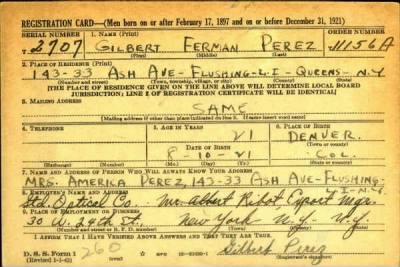 REGISTRATION CARD—(Men born on or after February 17, 1897 and on or before December 31, 1921)
SERIAL NUMBER 1. NAME (Print) ORDER NUMBER
T 2707 GILBERT FERMAN PEREZ 11156A
(First) (Middle) (Last)
2. PLACE OF RESIDENCE (Print)
143-33 ASH AVE-FLUSHING-L-I-QUEENS-N.Y
(Number and street) (Town, township, village, or city) (County) (State)
[THE PLACE OF RESIDENCE GIVEN ON THE LINE ABOVE WILL DETERMINE LOCAL BOARD
JURISDICTION; LINE 2 OF REGISTRATION CERTIFICATE WILL BE IDENTICAL]
3. MAILING ADDRESS
SAME
[Mailing address if other than place indicated on line 2. If same insert word same]
4. TELEPHONE 5. AGE IN YEARS 6. PLACE OF BIRTH
21 DENVER
DATE OF BIRTH (Town or county)
8-10-21 COL.
(Exchange) (Number) (Mo.) (Day) (Yr.) (State or country)
7. NAME AND ADDRESS OF PERSON WHO WILL ALWAYS KNOW YOUR ADDRESS
MRS. AMERICA PEREZ, 143-33 ASH AVE-FLUSHING-
L-I-N.Y.
8. EMPLOYER'S NAME AND ADDRESS
Std. Optical Co. Mr. Albert Ribot Export Mgr.
9. PLACE OF EMPLOYMENT OR BUSINESS
30 W. 24th St, New York N.Y. N.Y.
(Number and street or R. F. D. number) (Town) (County) (State)
I AFFIRM THAT I HAVE VERIFIED ABOVE ANSWERS AND THAT THEY ARE TRUE.
D. S. S. Form 1
(Revised 1-1-42) (over)
260 Gilbert Perez
(Registrant's signature)